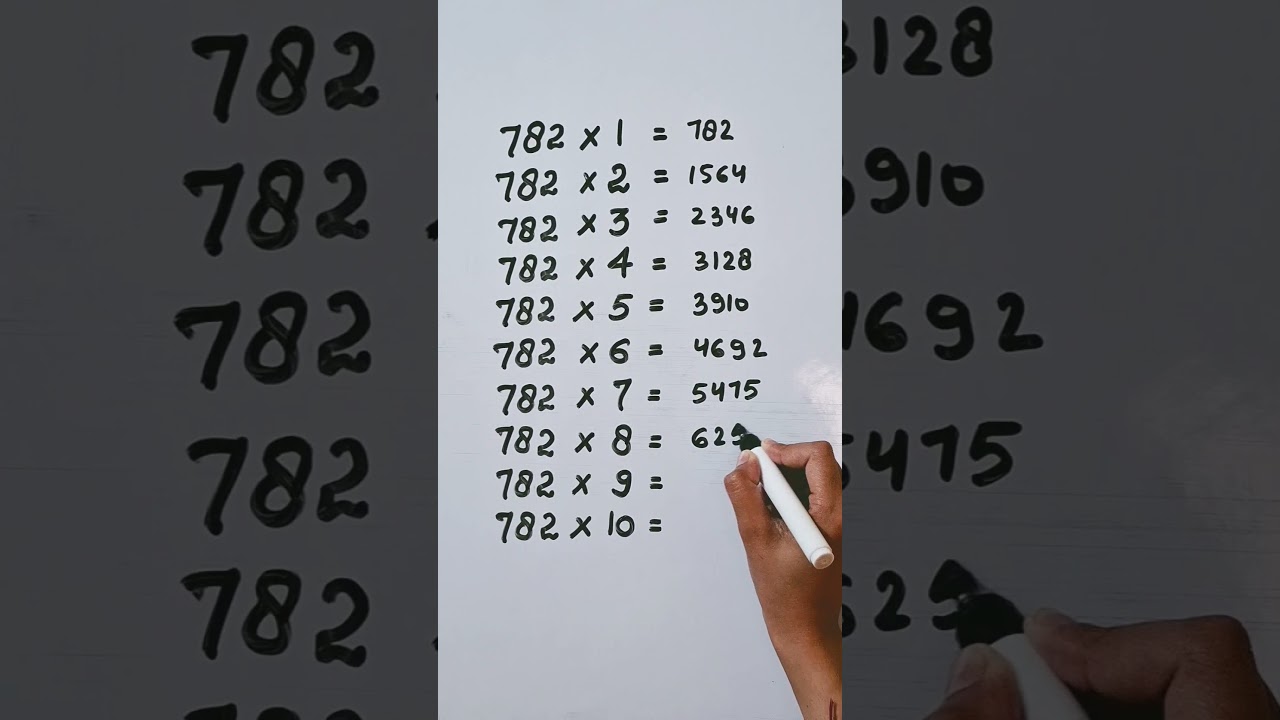 782 x 1 = 782
782 x 2 = 1564
782 x 3 = 2346
782 x 4 = 3128
782 x 5 = 3910
782 x 6 = 4692
782 x 7 = 5475
782 x 8 = 62
782 x 9 =
782 x 10 =